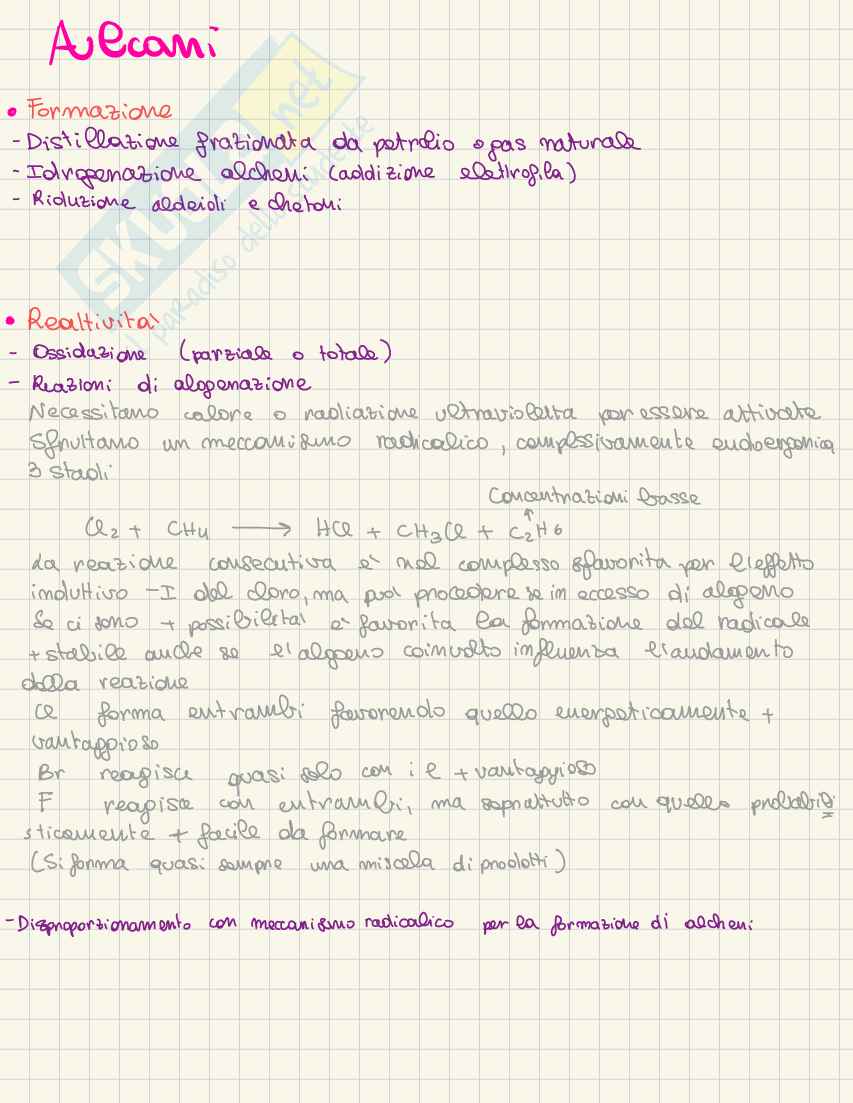 Alcani
• Formazione
- Distillazione frazionata da petrolio o gas naturale
- Idrogenazione alcheni (addizione elettrofila)
- Riduzione aldeidi e chetoni
• Reattività
- Ossidazione (parziale o totale)
- Reazioni di alogenazione
Necessitano calore o radiazione ultravioletta per essere attivate
Sfruttano un meccanismo radicalico, complessivamente endoergonica
3 stadi
Concentrazioni basse
Cl₂ + CH₄ → HCl + CH₃Cl + C₂H₆
La reazione consecutiva è nel complesso sfavorita per l'effetto
induttivo -I del cloro, ma può procedere se in eccesso di alogeno
Se ci sono + possibilità è favorita la formazione del radicale
+ stabile anche se l'alogeno coinvolto influenza l'andamento
della reazione
Cl forma entrambi favorendo quello energeticamente +
vantaggioso
Br reagisce quasi solo con il + vantaggioso
F reagisce con entrambi, ma soprattutto con quello probabili
sticamente + facile da formare
(Si forma quasi sempre una miscela di prodotti)
- Disproporzionamento con meccanismo radicalico per la formazione di alcheni
SKUOLA.net
il paradiso dello studente